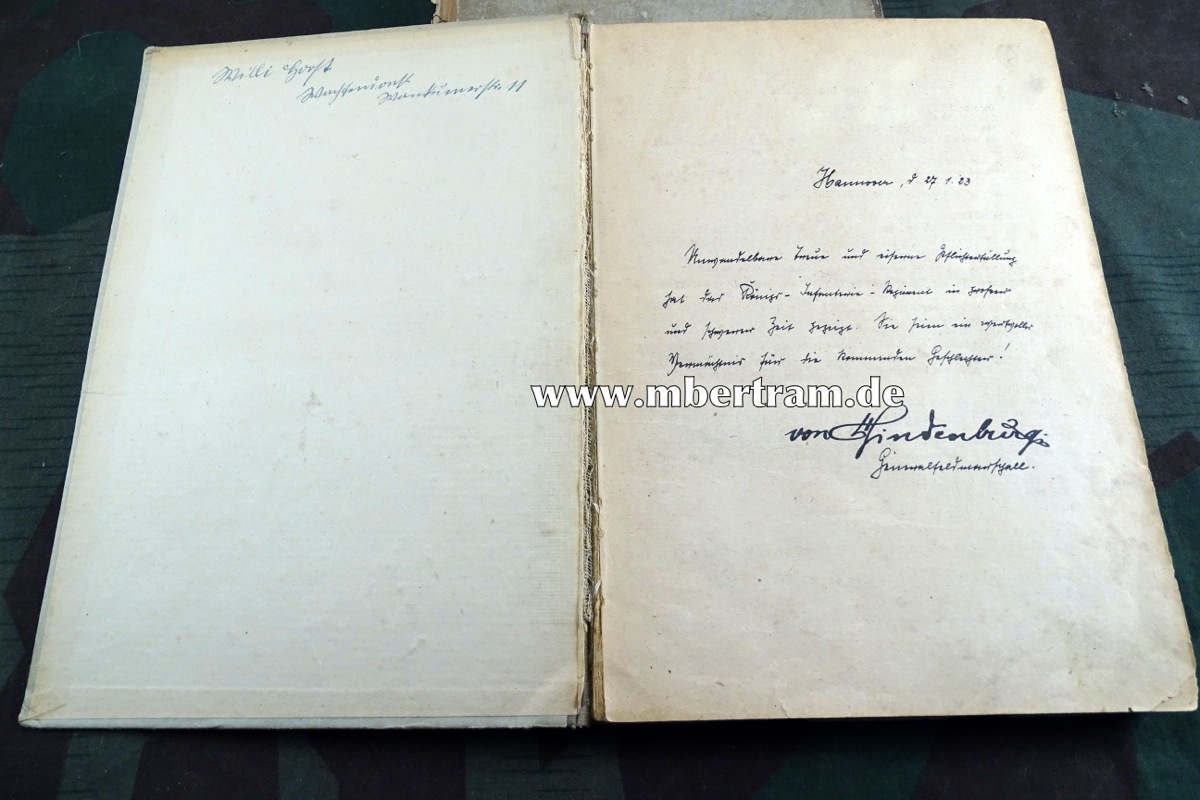 Willi Horst
Wachtendonk
Wankumerstr. 11
Hannover, d 27.1.23
Unwandelbare Treue und eiserne Pflichterfüllung
hat das Königs-Infanterie-Regiment in großer
und schwerer Zeit gezeigt. Sie seien ein wertvolles
Vermächtnis für die kommenden Geschlechter!
www.mbertram.de
von Hindenburg
Generalfeldmarschall.